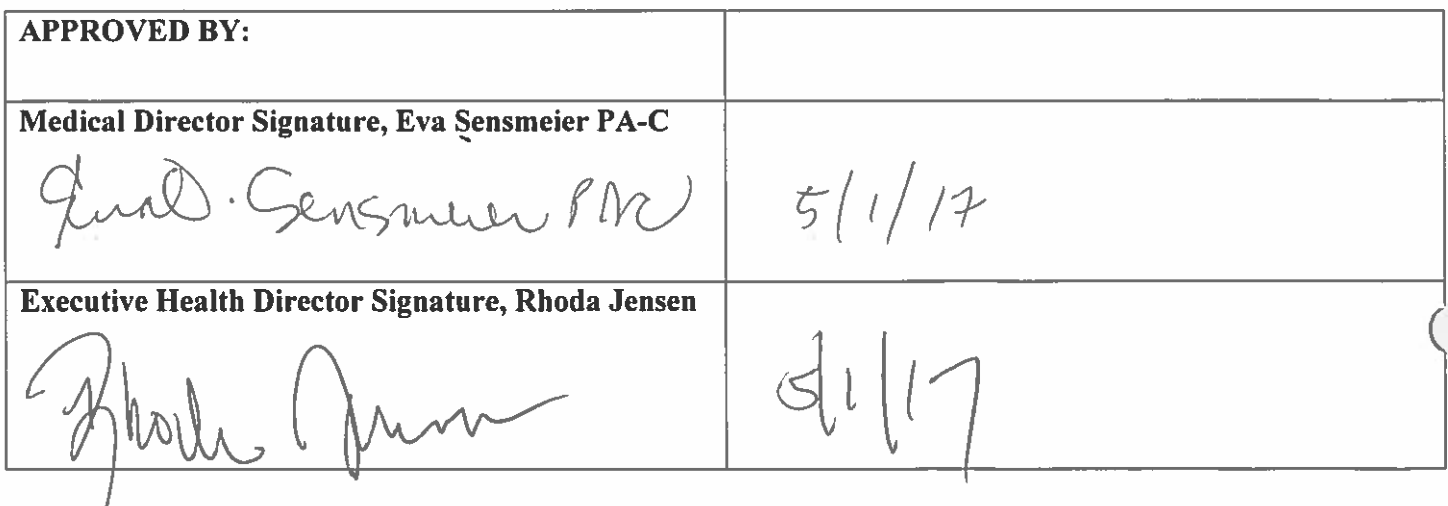 APPROVED BY:
Medical Director Signature, Eva Sensmeier PA-C
Eva D. Sensmeier PAC
5/1/17
Executive Health Director Signature, Rhoda Jensen
Rhoda Jensen
5/1/17